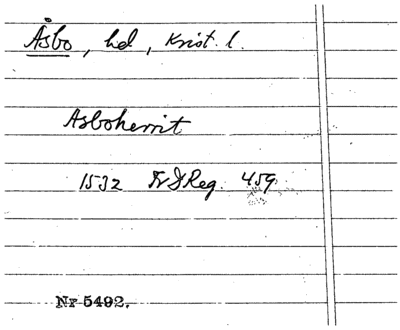 Åsbo, hd, Krist. l.
Asboherrit
1532 Fr I Reg. 459
Nr 5492.